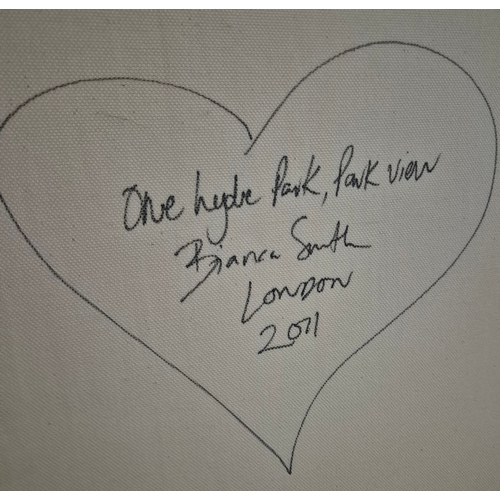 One Hyde Park, Park View
Bianca Smith
London
2011